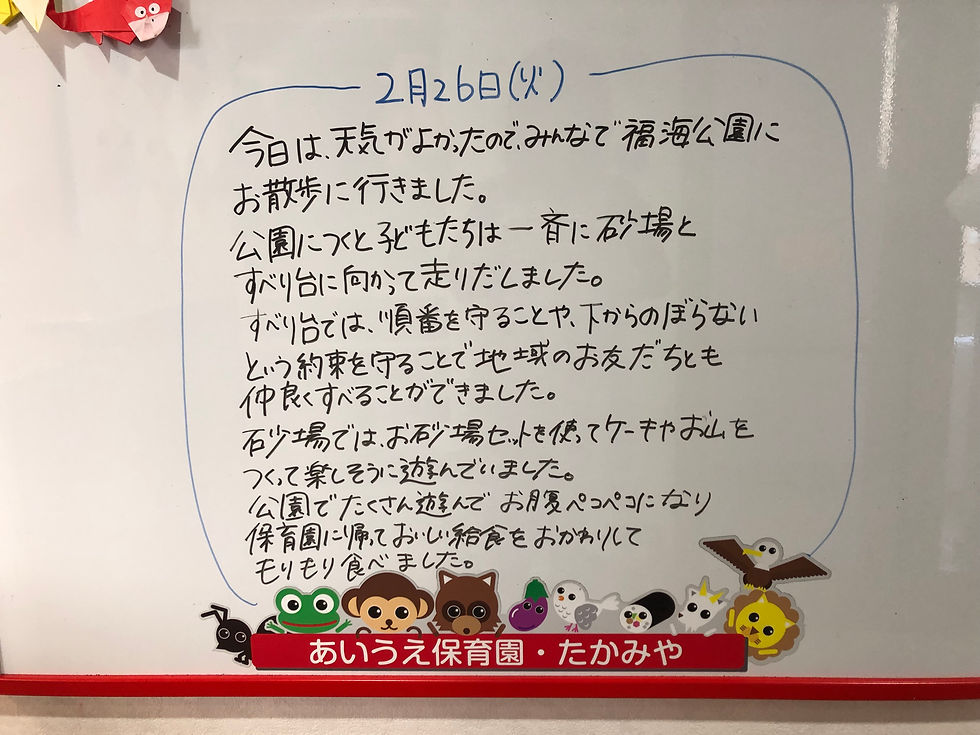 2月26日(火)
今日は、天気がよかったので、みんなで福海公園に
お散歩に行きました。
公園につくと子どもたちは一斉に砂場と
すべり台に向かって走りだしました。
すべり台では、順番を守ることや、下からのぼらない
という約束を守ることで地域のお友だちとも
仲良くすべることができました。
砂場では、お砂場セットを使ってケーキやお山を
つくって楽しそうに遊んでいました。
公園でたくさん遊んでお腹ペコペコになり
保育園に帰っておいしい給食をおかわりして
もりもり食べました。
あいうえ保育園・たかみや